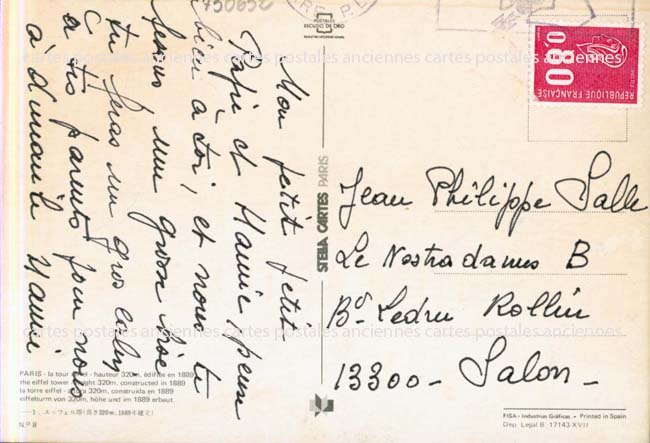 750652
POSTALES
ESCUDO DE ORO
0.80
REPUBLIQUE FRANÇAISE
Mon petit
Papi et Mamie, pense
bien à toi, et nous te
faisons une grosse bise
tu feras un gros calin
à tes parents pour nous
à dimanche Mamie
STELLA CARTES PARIS
Jean Philippe Salle
Le Nostradamus B
Bd Ledru Rollin
13300 - Salon -
cartes postales anciennes cartes postales anciennes cartes postales anciennes
cartes postales anciennes cartes postales anciennes cartes postales anciennes
PARIS - la tour eiffel - hauteur 320m, édifiée en 1889
the eiffel tower height 320m, constructed in 1889
la torre eiffel - 320m, construida en 1889
eiffelturm von 320m, höhe und im 1889 erbaut.
エッフェル塔 (高さ320m, 1889年建立)
N.º 8
FISA - Industrias Gráficas. - Printed in Spain
Dep. Legal B. 17143-XVII